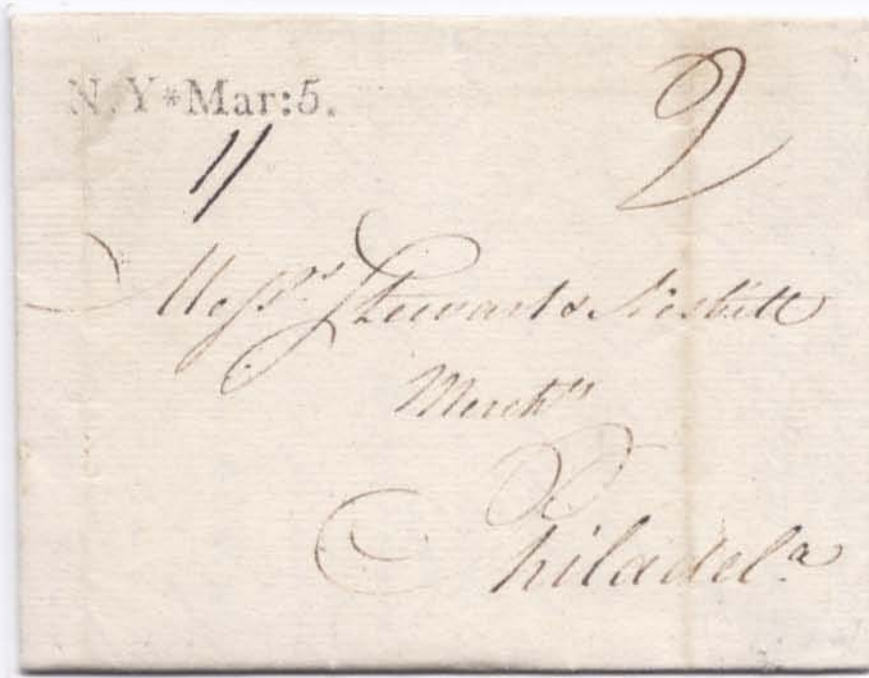 N.Y*Mar:5.
2
11
Mess.rs Stewart & Nisbitt
Merch.ts
Philadel.a